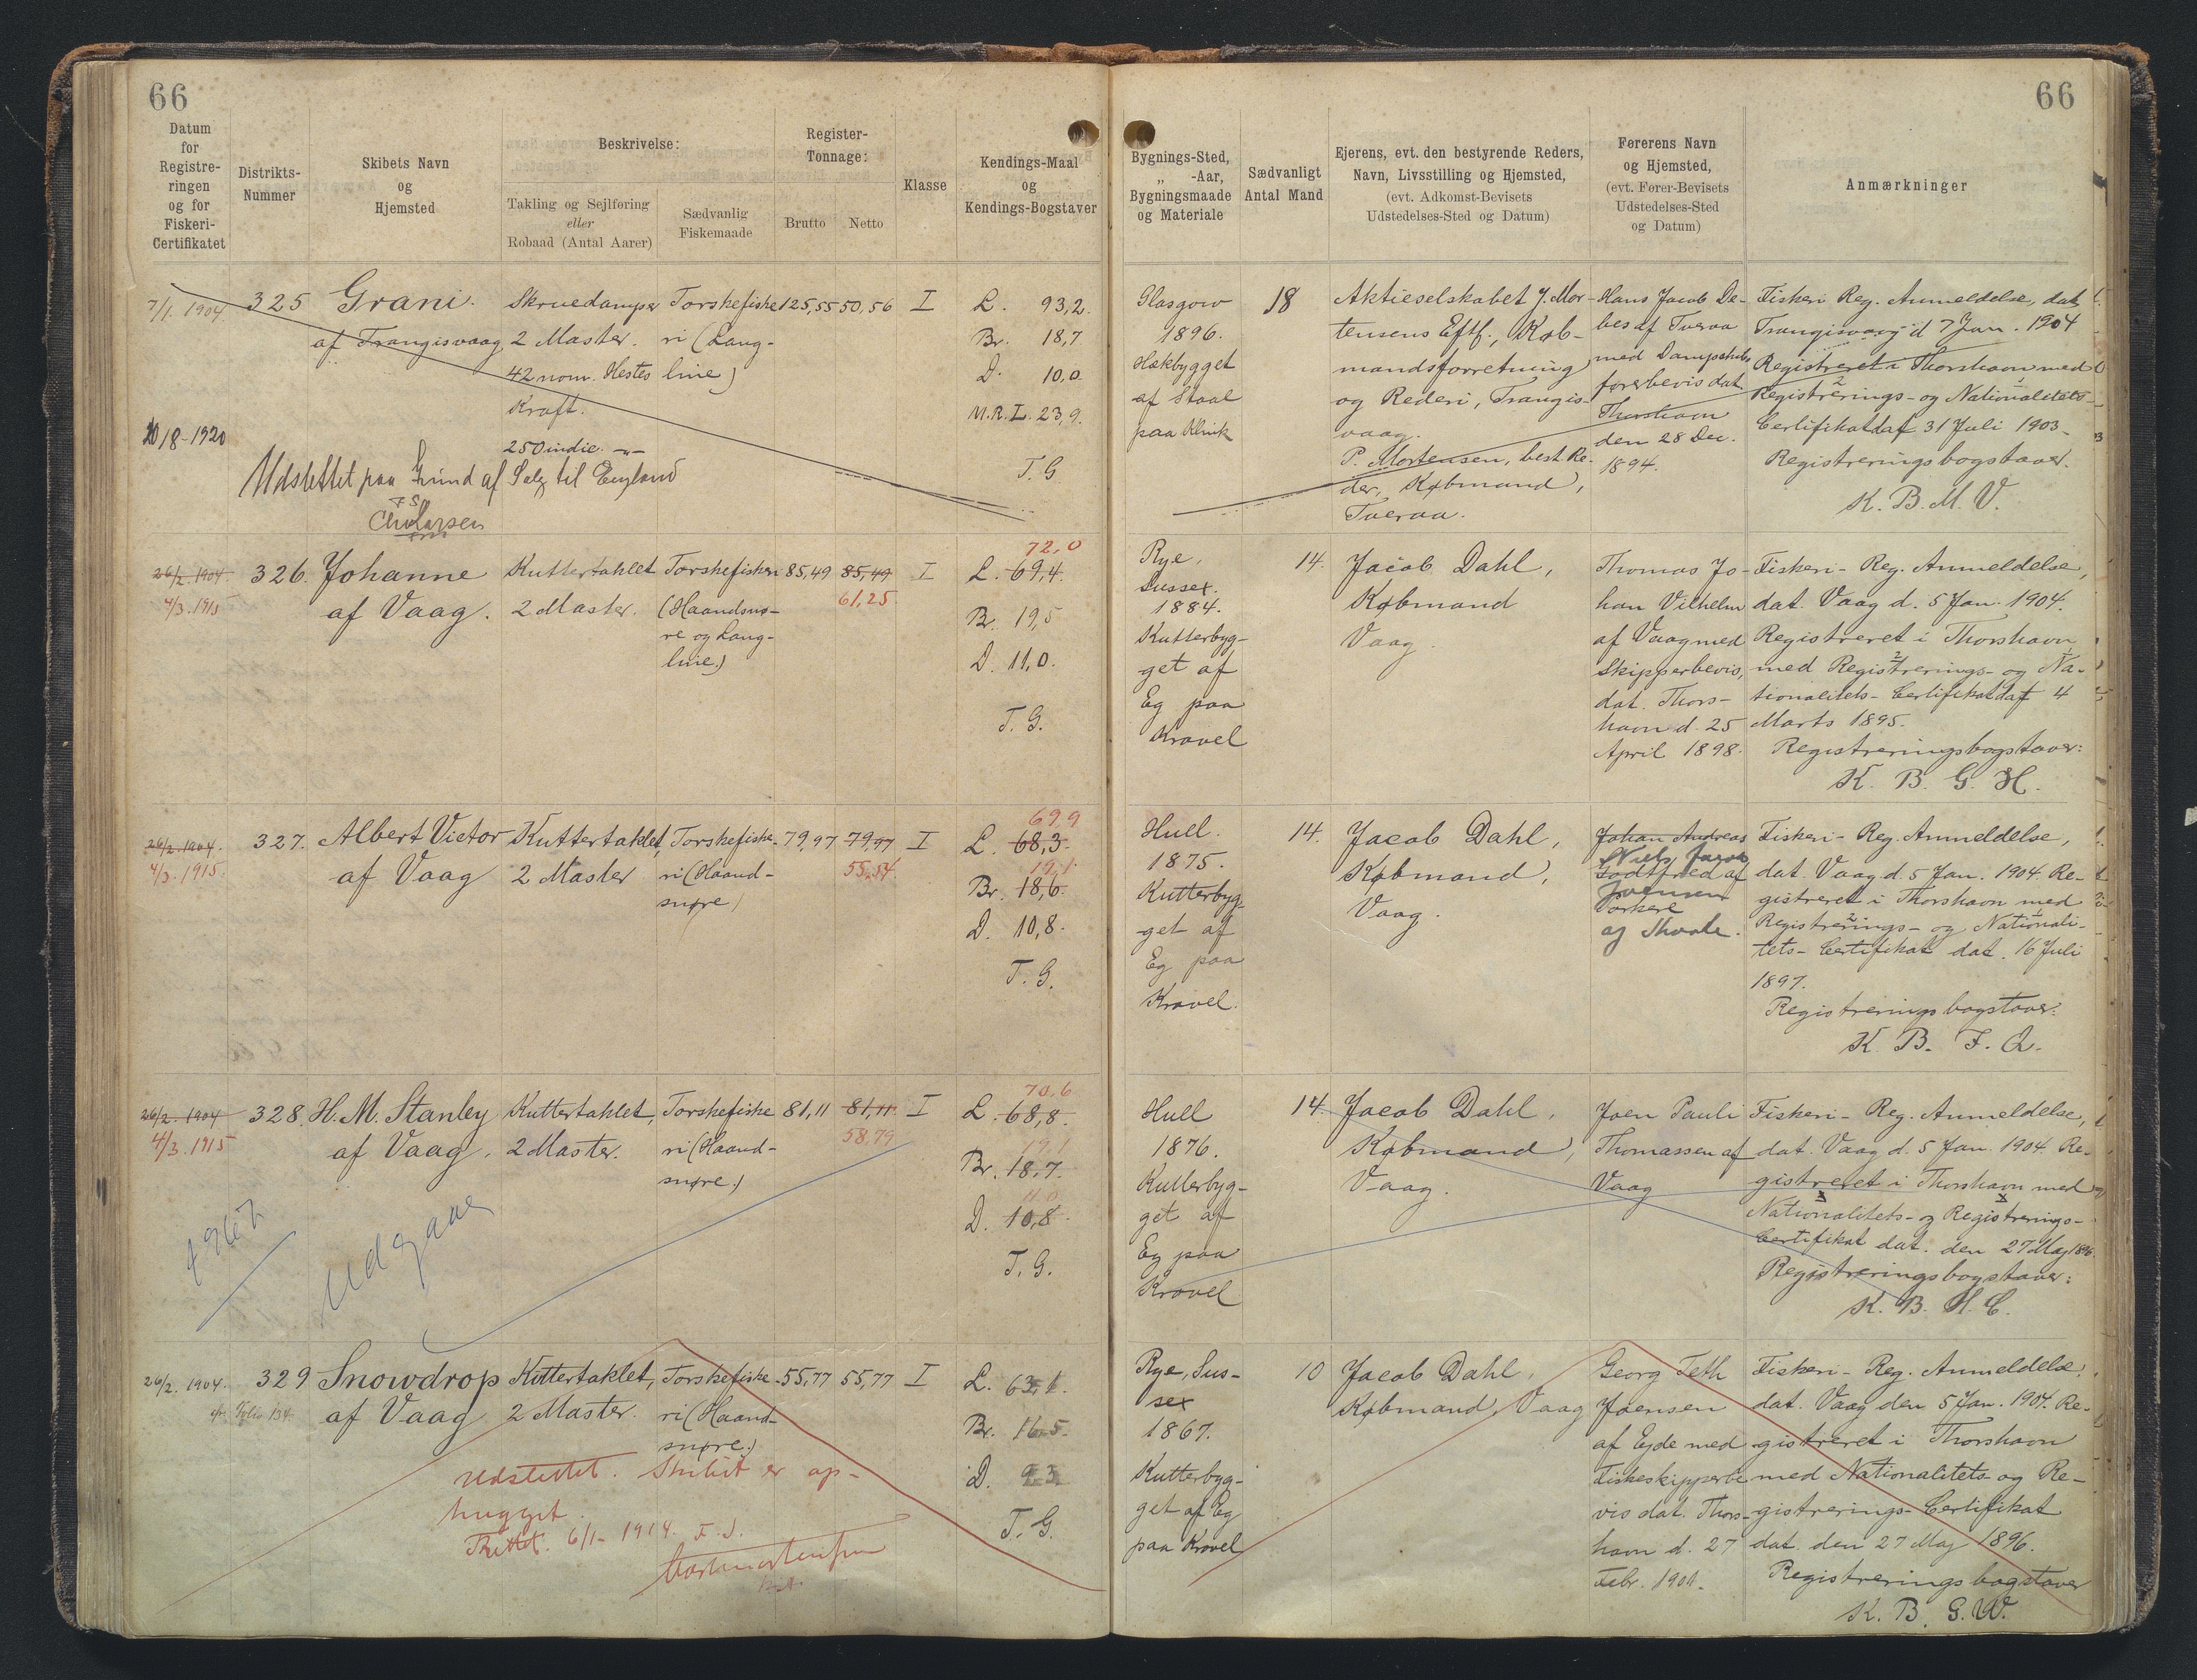 66
66
Datum
for
Registre-
ringen
og for
Fiskeri-
Certifikatet
Distrikts-
Nummer
Skibets Navn
og
Hjemsted
Beskrivelse:
Takling og Sejlføring
eller
Robaad (Antal Aarer)
Sædvanlig
Fiskemaade
Register-
Tonnage:
Brutto
Netto
Klasse
Kendings-Maal
og
Kendings-Bogstaver
Bygnings-Sted,
„ -Aar,
Bygningsmaade
og Materiale
Sædvanligt
Antal Mand
Ejerens, evt. den bestyrende Reders,
Navn, Livsstilling og Hjemsted,
(evt. Adkomst-Bevisets
Udstedelses-Sted og Datum)
Førerens Navn
og Hjemsted,
(evt. Fører-Bevisets
Udstedelses-Sted
og Datum)
Anmærkninger
7/1. 1904
325
Grani.
af Trangisvaag
Skruedamper
2 Master.
42 nom. Hestes
Kraft.
250 indic. -"-
Torskefiske
ri (Lang-
line)
125,55
50,56
I
L. 93,2.
Br. 18,7
D. 10,0.
M.R.L. 23,9.
T. G.
10/8-1920
Udslettet paa Grund af Salg til England
Glasgow
1896.
Hækbygget
af Staal
paa Klink
18
Aktieselskabet J. Mor-
tensens Eftf., Køb-
mandsforretning
og Rederi, Trangis-
vaag.
P. Mortensen, best. Re-
der, Købmand,
Tveraa.
Hans Jacob De-
bes af Tveraa
med Dampskibs
førerbevis dat.
Thorshavn
den 28 Dec.
1894.
Fiskeri Reg. Anmeldelse, dat.
Trangisvaag d 7 Jan. 1904
Registreret i Thorshavn med
Registrerings- og Nationalitets-
Certifikat dat 31 Juli 1903.
Registreringsbogstaver.
K. B. M. V.
26/2. 1904.
4/3. 1915
326.
Johanne
af Vaag.
Kuttertaklet
2 Master.
Torskefiskeri
(Haandsnø-
re og Lang-
line.)
85,49
85,49
61,25
I
72,0
L. 69,4.
Br. 19,5
D. 11,0.
T. G.
Rye,
Sussex.
1884.
Kutterbyg-
get af
Eg paa
Kravel
14.
Jacob Dahl,
Købmand
Vaag.
Thomas Jo-
han Vilhelm
af Vaag med
Skipperbevis,
dat. Thors-
havn d. 25
April 1898.
Fiskeri- Reg. Anmeldelse,
dat. Vaag d. 5 Jan. 1904.
Registreret i Thorshavn
med Registrerings- og Na-
tionalitets- Certifikat dat 4
Marts 1895.
Registreringsbogstaver:
K. B. G. H.
26/2. 1904.
4/3. 1915.
327.
Albert Victor
af Vaag
Kuttertaklet,
2 Master
Torskefiske-
ri (Haand-
snøre)
79,97
79,97
55,54
I
69,9
L. 68,3.
19,1
Br. 18,6.
D. 10,8.
T. G.
Hull.
1875.
Kutterbyg-
get af
Eg paa
Kravel.
14.
Jacob Dahl,
Købmand,
Vaag.
Johan Andreas
Niels Jacob
Godtfred af
Joensen
Porkere
Fiskeri- Reg. Anmeldelse,
dat. Vaag d. 5 Jan. 1904. Re-
gistreret i Thorshavn med
Registrerings- og Nationali-
tets- Certifikat dat. 16 Juli
1897.
Registreringsbogstaver:
K. B. F. Q.
26/2. 1904
4/3. 1915
328.
H. M. Stanley
af Vaag.
Kuttertaklet,
2 Master.
Torskefiske
ri (Haand-
snøre.)
81,11
81,11.
58,79
I
70,6
L. 68,8.
19,1
Br. 18,7.
11,0
D. 10,8.
T. G.
Udgaaet
Hull
1876.
Kutterbyg-
get af
Eg paa
Kravel
14.
Jacob Dahl,
Købmand,
Vaag.
Joen Pauli
Thomassen af
Vaag
Fiskeri- Reg. Anmeldelse,
dat. Vaag d. 5 Jan. 1904. Re-
gistreret i Thorshavn med
Nationalitets- og Registrerings-
Certifikat dat. den 27 Maj 1896.
Registreringsbogstaver:
K. B. H. C.
26/2. 1904.
329
Snowdrop
af Vaag
Kuttertaklet,
2 Master.
Torskefiske-
ri (Haand-
snøre.)
55,77
55,77
I
L. 63,1.
Br. 16,5.
D. 9,3
T. G.
Udslettet. Skibet er op-
hugget.
6/1- 1914. F. S.
Rye, Sus-
sex
1867.
Kutterbyg-
get af Eg
paa Kravel
10
Jacob Dahl,
Købmand, Vaag
Georg Seth
Joensen
af Ejde med
Fiskeskipperbe
vis dat. Thors-
havn d. 27
Febr. 1901.
Fiskeri- Reg. Anmeldelse,
dat. Vaag den 5 Jan. 1904. Re-
gistreret i Thorshavn
med Nationalitets- og Re-
gistrerings- Certifikat
dat. den 27 Maj 1896.
Registreringsbogstaver
K. B. G. W.